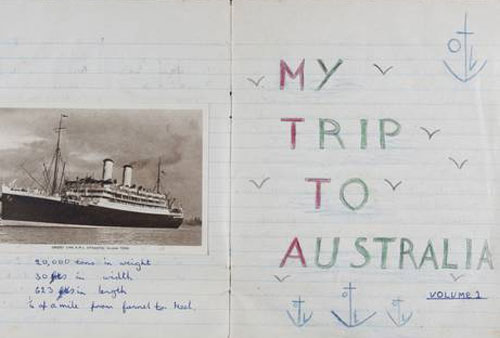 20,000 tons in weight
30 fts in width
623 fts in length
of a mile from funnel to keel.
MY
TRIP
TO
AUSTRALIA
VOLUME 1